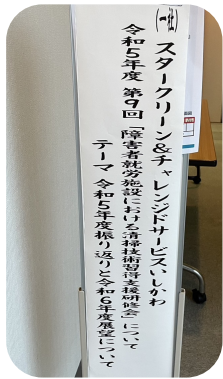 (一社)スタークリーン&チャレンジドサービスいしかわ
令和5年度 第9回「障害者就労施設における清掃技術習得支援研修会」について
テーマ 令和5年度振り返りと令和6年度展望について